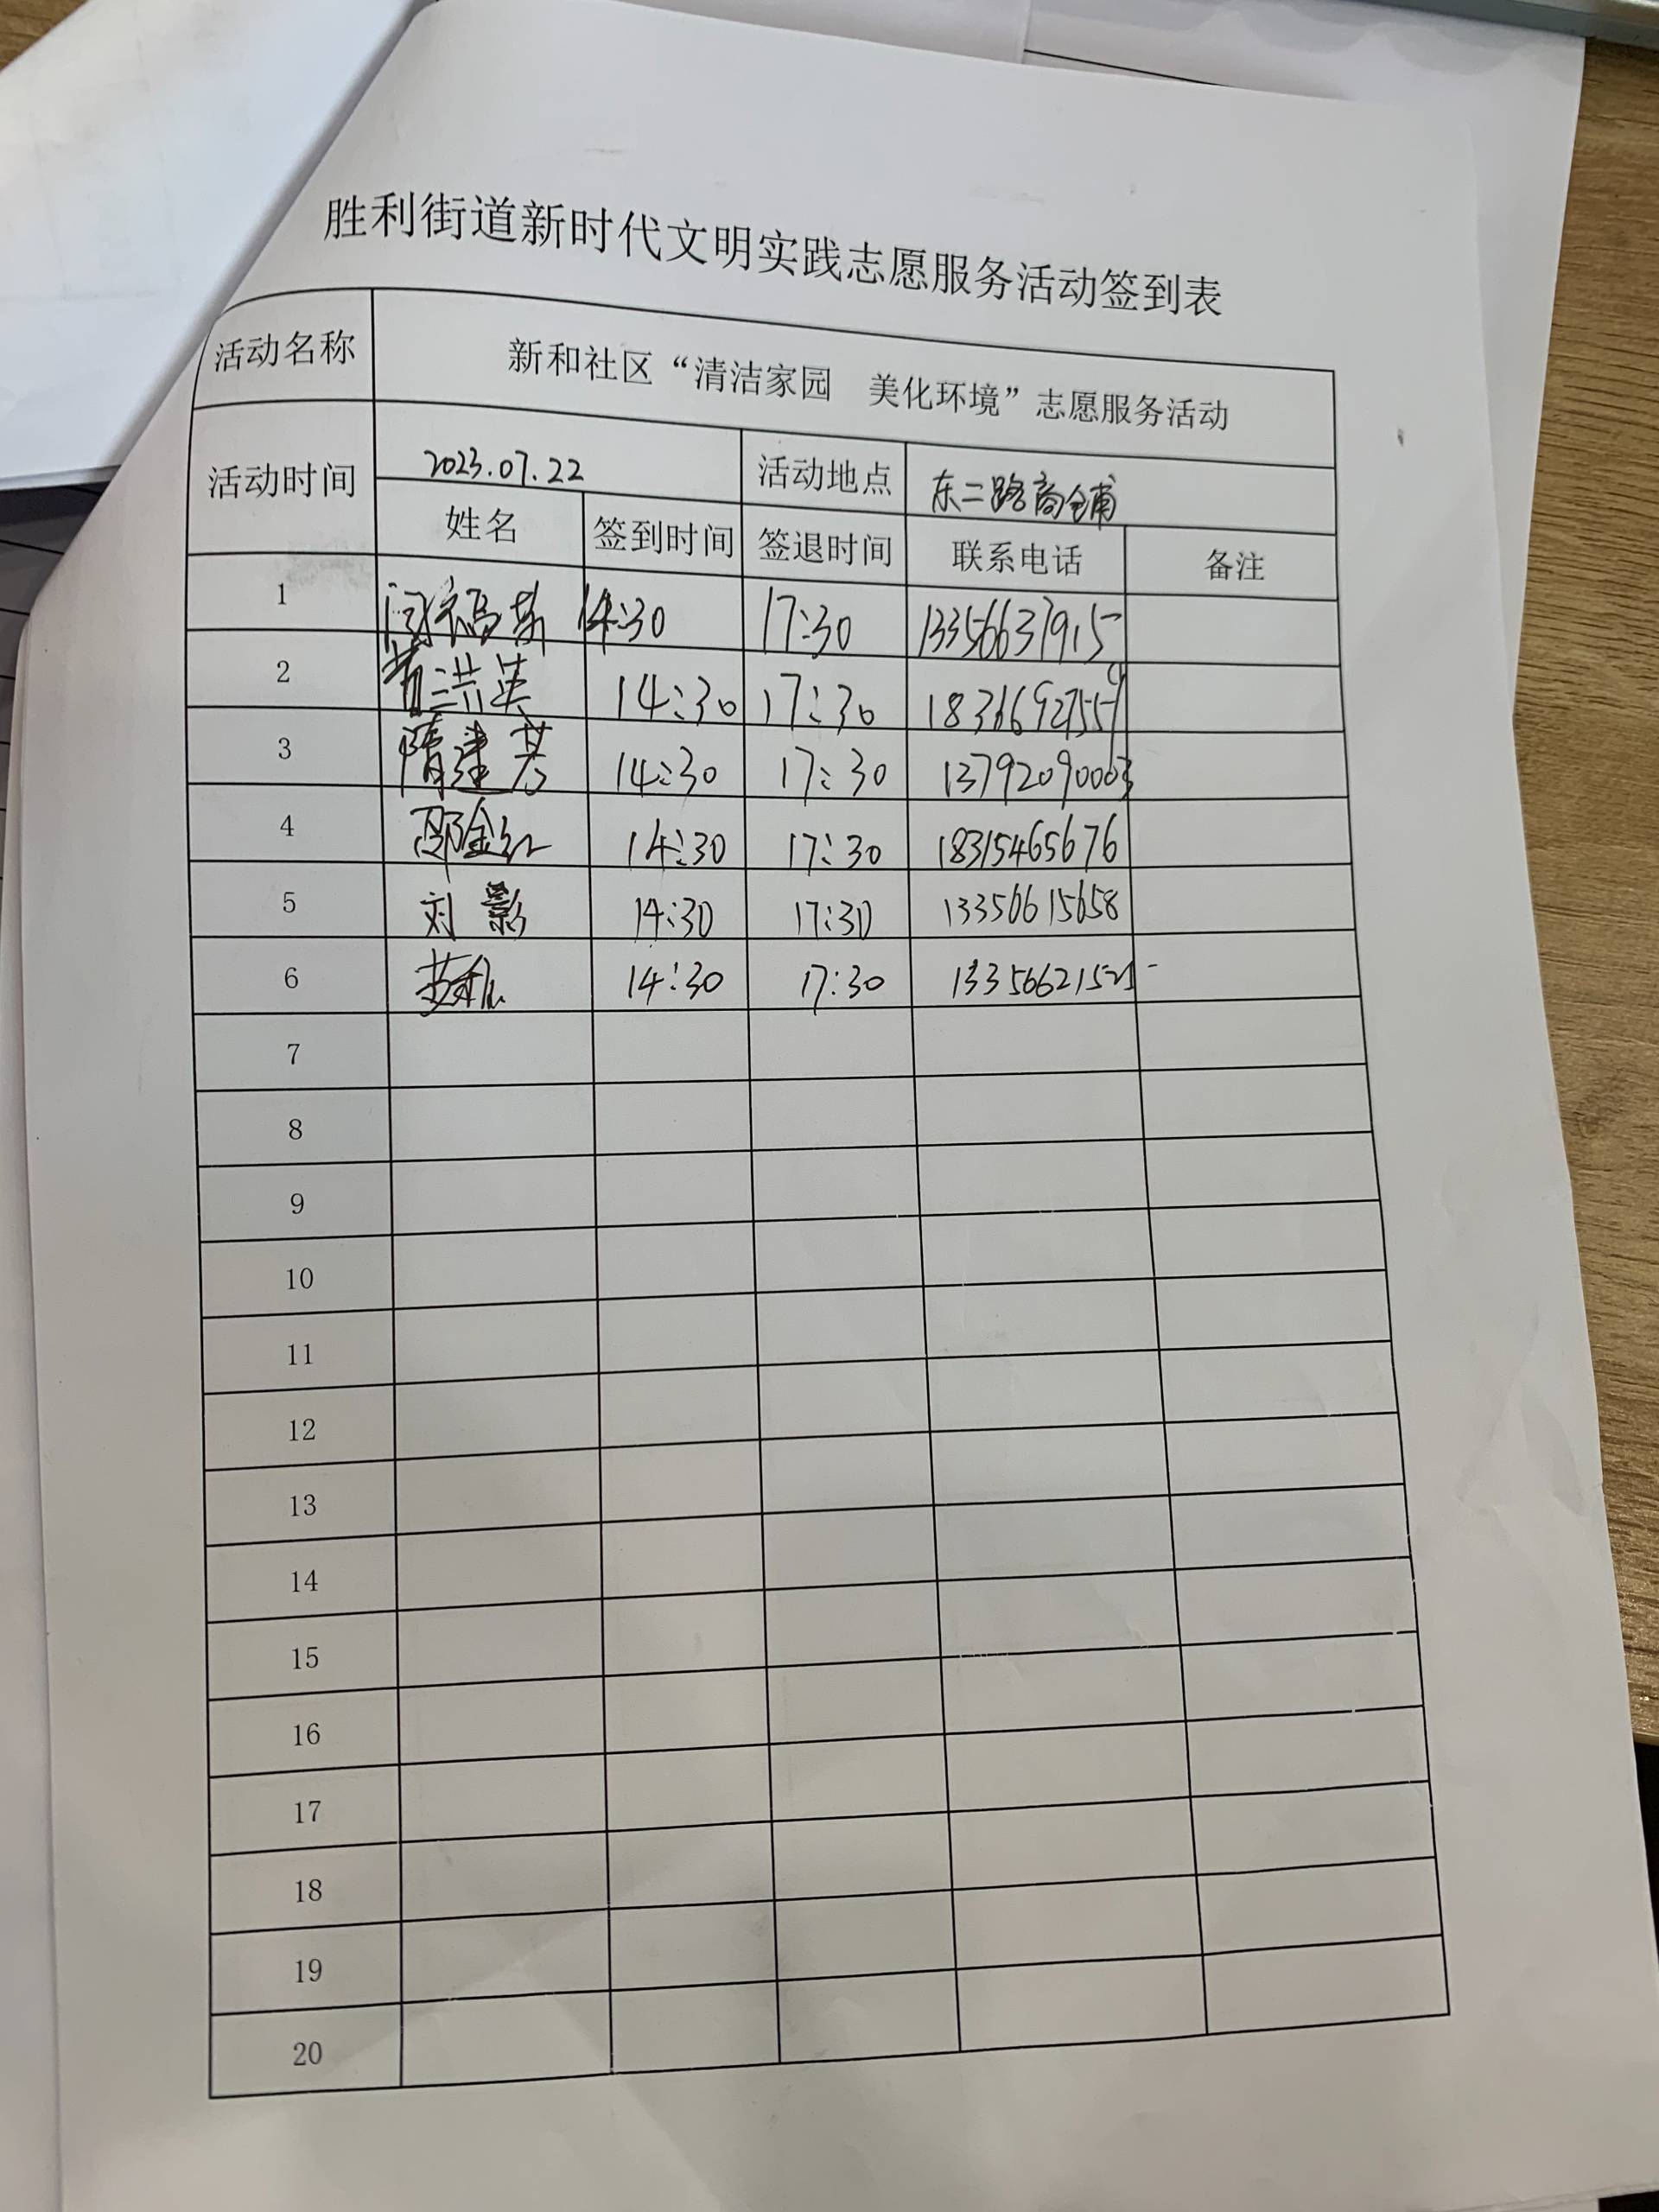 胜利街道新时代文明实践志愿服务活动签到表
活动名称 新和社区“清洁家园 美化环境”志愿服务活动
活动时间 2023.07.22 活动地点 东二路商铺
姓名 签到时间 签退时间 联系电话 备注
1 14:30 17:30 13356637915
2 14:30 17:30 18366927559
3 隋建芳 14:30 17:30 13792090003
4 邵金红 14:30 17:30 18315465676
5 刘影 14:30 17:30 13356615658
6 14:30 17:30
7
8
9
10
11
12
13
14
15
16
17
18
19
20